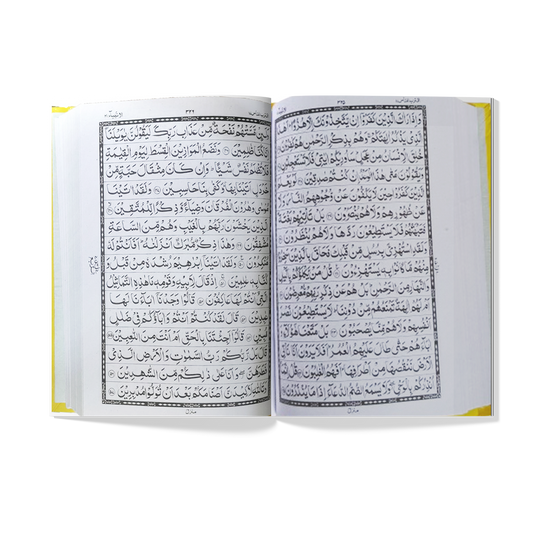 ۳۲۵
وَاِذَا رَاٰكَ الَّذِيْنَ كَفَرُوْٓا اِنْ يَّتَّخِذُوْنَكَ اِلَّا هُزُوًا اَهٰذَا
الَّذِيْ يَذْكُرُ اٰلِهَتَكُمْ وَهُمْ بِذِكْرِ الرَّحْمٰنِ هُمْ كٰفِرُوْنَ
خُلِقَ الْاِنْسَانُ مِنْ عَجَلٍ سَاُورِيْكُمْ اٰيٰتِيْ فَلَا تَسْتَعْجِلُوْنِ
وَيَقُوْلُوْنَ مَتٰى هٰذَا الْوَعْدُ اِنْ كُنْتُمْ صٰدِقِيْنَ لَوْ يَعْلَمُ
الَّذِيْنَ كَفَرُوْا حِيْنَ لَا يَكُفُّوْنَ عَنْ وُّجُوْهِهِمُ النَّارَ وَلَا
عَنْ ظُهُوْرِهِمْ وَلَا هُمْ يُنْصَرُوْنَ بَلْ تَاْتِيْهِمْ بَغْتَةً
فَتَبْهَتُهُمْ فَلَا يَسْتَطِيْعُوْنَ رَدَّهَا وَلَا هُمْ يُنْظَرُوْنَ
وَلَقَدِ اسْتُهْزِئَ بِرُسُلٍ مِّنْ قَبْلِكَ فَحَاقَ بِالَّذِيْنَ سَخِرُوْا
مِنْهُمْ مَّا كَانُوْا بِهٖ يَسْتَهْزِءُوْنَ قُلْ مَنْ يَّكْلَؤُكُمْ بِالَّيْلِ
وَالنَّهَارِ مِنَ الرَّحْمٰنِ بَلْ هُمْ عَنْ ذِكْرِ رَبِّهِمْ مُّعْرِضُوْنَ
اَمْ لَهُمْ اٰلِهَةٌ تَمْنَعُهُمْ مِّنْ دُوْنِنَا لَا يَسْتَطِيْعُوْنَ نَصْرَ
اَنْفُسِهِمْ وَلَا هُمْ مِّنَّا يُصْحَبُوْنَ بَلْ مَتَّعْنَا هٰٓؤُلَآءِ
وَاٰبَآءَهُمْ حَتّٰى طَالَ عَلَيْهِمُ الْعُمُرُ اَفَلَا يَرَوْنَ اَنَّا نَاْتِي
الْاَرْضَ نَنْقُصُهَا مِنْ اَطْرَافِهَا اَفَهُمُ الْغٰلِبُوْنَ قُلْ اِنَّمَآ
اُنْذِرُكُمْ بِالْوَحْيِ وَلَا يَسْمَعُ الصُّمُّ الدُّعَآءَ اِذَا مَا يُنْذَرُوْنَ
منزل
۳۲۶
الانبيآء
وَلَئِنْ مَّسَّتْهُمْ نَفْحَةٌ مِّنْ عَذَابِ رَبِّكَ لَيَقُوْلُنَّ يٰوَيْلَنَآ
اِنَّا كُنَّا ظٰلِمِيْنَ وَنَضَعُ الْمَوَازِيْنَ الْقِسْطَ لِيَوْمِ الْقِيٰمَةِ
فَلَا تُظْلَمُ نَفْسٌ شَيْـًٔا وَاِنْ كَانَ مِثْقَالَ حَبَّةٍ مِّنْ
خَرْدَلٍ اَتَيْنَا بِهَا وَكَفٰى بِنَا حٰسِبِيْنَ وَلَقَدْ اٰتَيْنَا
مُوْسٰى وَهٰرُوْنَ الْفُرْقَانَ وَضِيَآءً وَّذِكْرًا لِّلْمُتَّقِيْنَ
الَّذِيْنَ يَخْشَوْنَ رَبَّهُمْ بِالْغَيْبِ وَهُمْ مِّنَ السَّاعَةِ
مُشْفِقُوْنَ وَهٰذَا ذِكْرٌ مُّبٰرَكٌ اَنْزَلْنٰهُ اَفَاَنْتُمْ لَهٗ
مُنْكِرُوْنَ وَلَقَدْ اٰتَيْنَآ اِبْرٰهِيْمَ رُشْدَهٗ مِنْ قَبْلُ وَ
كُنَّا بِهٖ عٰلِمِيْنَ اِذْ قَالَ لِاَبِيْهِ وَقَوْمِهٖ مَا هٰذِهِ التَّمَاثِيْلُ
الَّتِيْٓ اَنْتُمْ لَهَا عٰكِفُوْنَ قَالُوْا وَجَدْنَآ اٰبَآءَنَا لَهَا
عٰبِدِيْنَ قَالَ لَقَدْ كُنْتُمْ اَنْتُمْ وَاٰبَآؤُكُمْ فِيْ ضَلٰلٍ
مُّبِيْنٍ قَالُوْٓا اَجِئْتَنَا بِالْحَقِّ اَمْ اَنْتَ مِنَ اللّٰعِبِيْنَ
قَالَ بَلْ رَّبُّكُمْ رَبُّ السَّمٰوٰتِ وَالْاَرْضِ الَّذِيْ
فَطَرَهُنَّ وَاَنَا عَلٰى ذٰلِكُمْ مِّنَ الشّٰهِدِيْنَ
وَتَاللّٰهِ لَاَكِيْدَنَّ اَصْنَامَكُمْ بَعْدَ اَنْ تُوَلُّوْا مُدْبِرِيْنَ
منزل